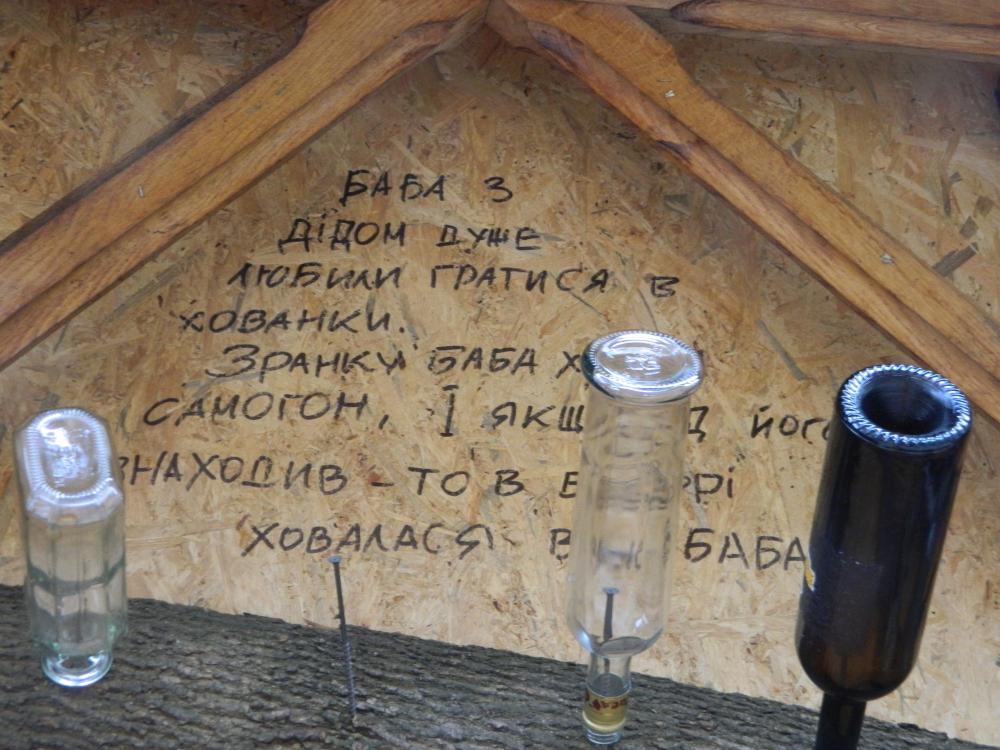 БАБА З
ДІДОМ ДУЖЕ
ЛЮБИЛИ ГРАТИСЯ В
ХОВАНКИ.
ЗРАНКУ БАБА
САМОГОН, І ЙОГО
ЗНАХОДИВ - ТО В
ХОВАЛАСЯ БАБА